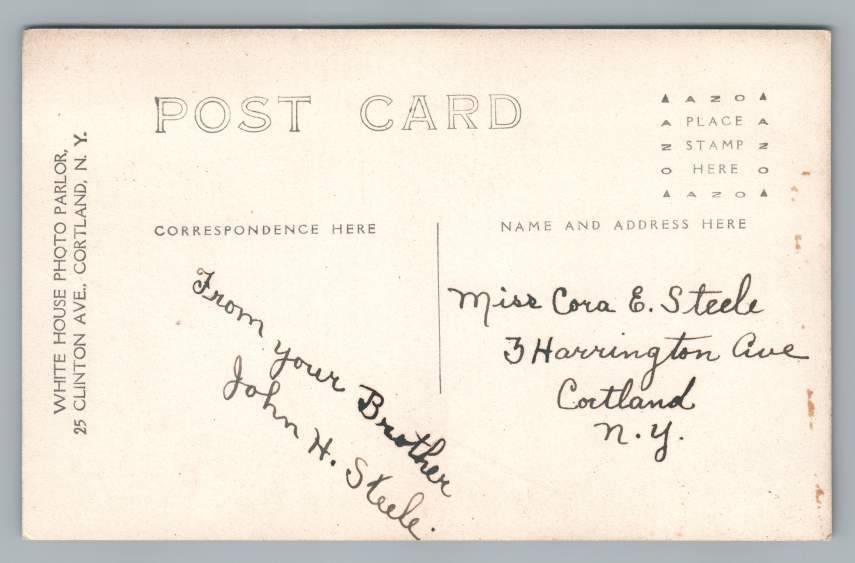 POST CARD
▲ A Z O ▲
A PLACE A
Z STAMP Z
O HERE O
▲ A Z O ▲
WHITE HOUSE PHOTO PARLOR,
25 CLINTON AVE., CORTLAND, N. Y.
CORRESPONDENCE HERE
From your Brother
John H. Steele.
NAME AND ADDRESS HERE
Miss Cora E. Steele
3 Harrington Ave
Cortland
N.Y.